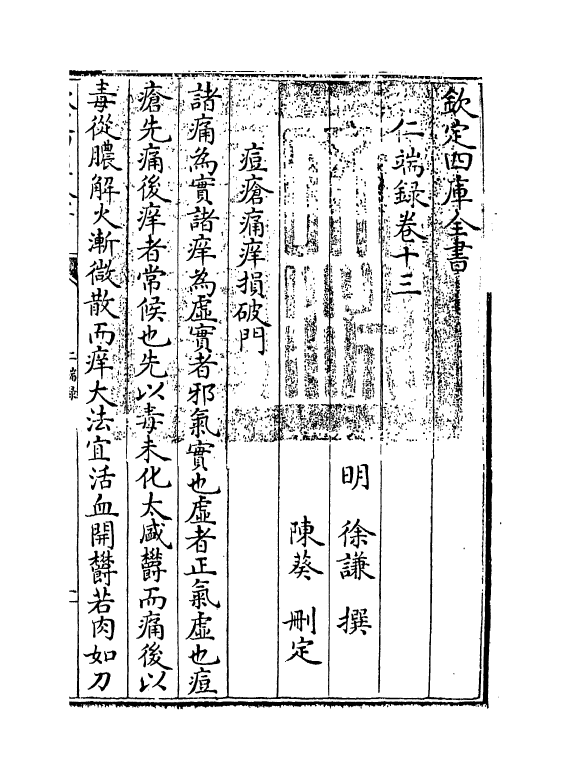 欽定四庫全書
仁端録卷十三
明 徐謙 撰
陳葵 刪定
痘瘡痛痒損破門
諸痛為實諸痒為虛實者邪氣實也虛者正氣虛也痘
瘡先痛後痒者常候也先以毒未化太盛鬱而痛後以
毒從膿解火漸微散而痒大法宜活血開鬱若肉如刀